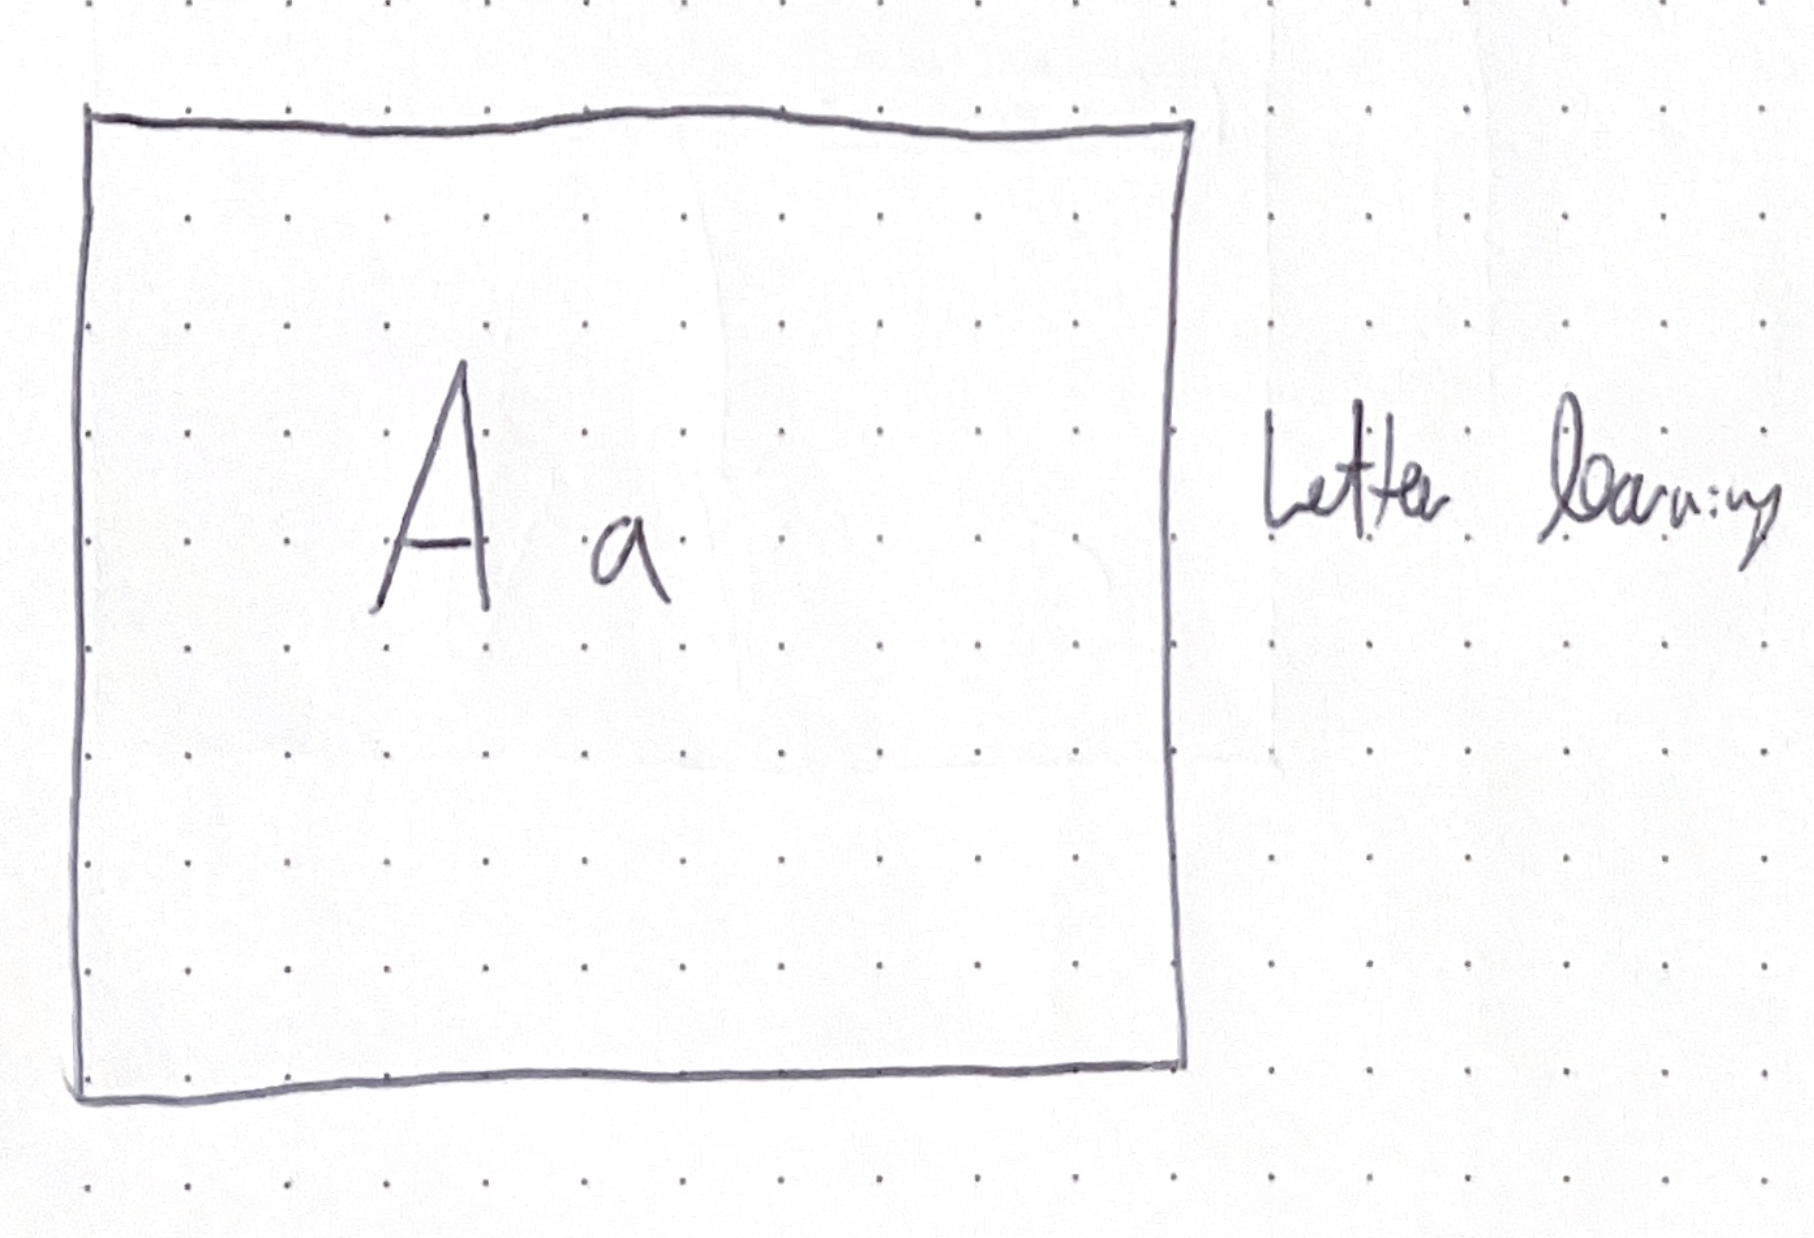 A a
Letter learning